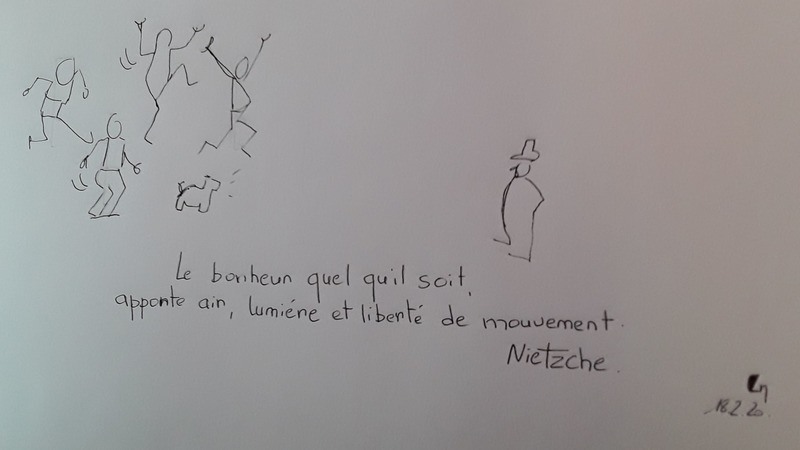 Le bonheur quel qu'il soit,
apporte air, lumiére et liberté de mouvement.
Nietzche.
18.2.20.